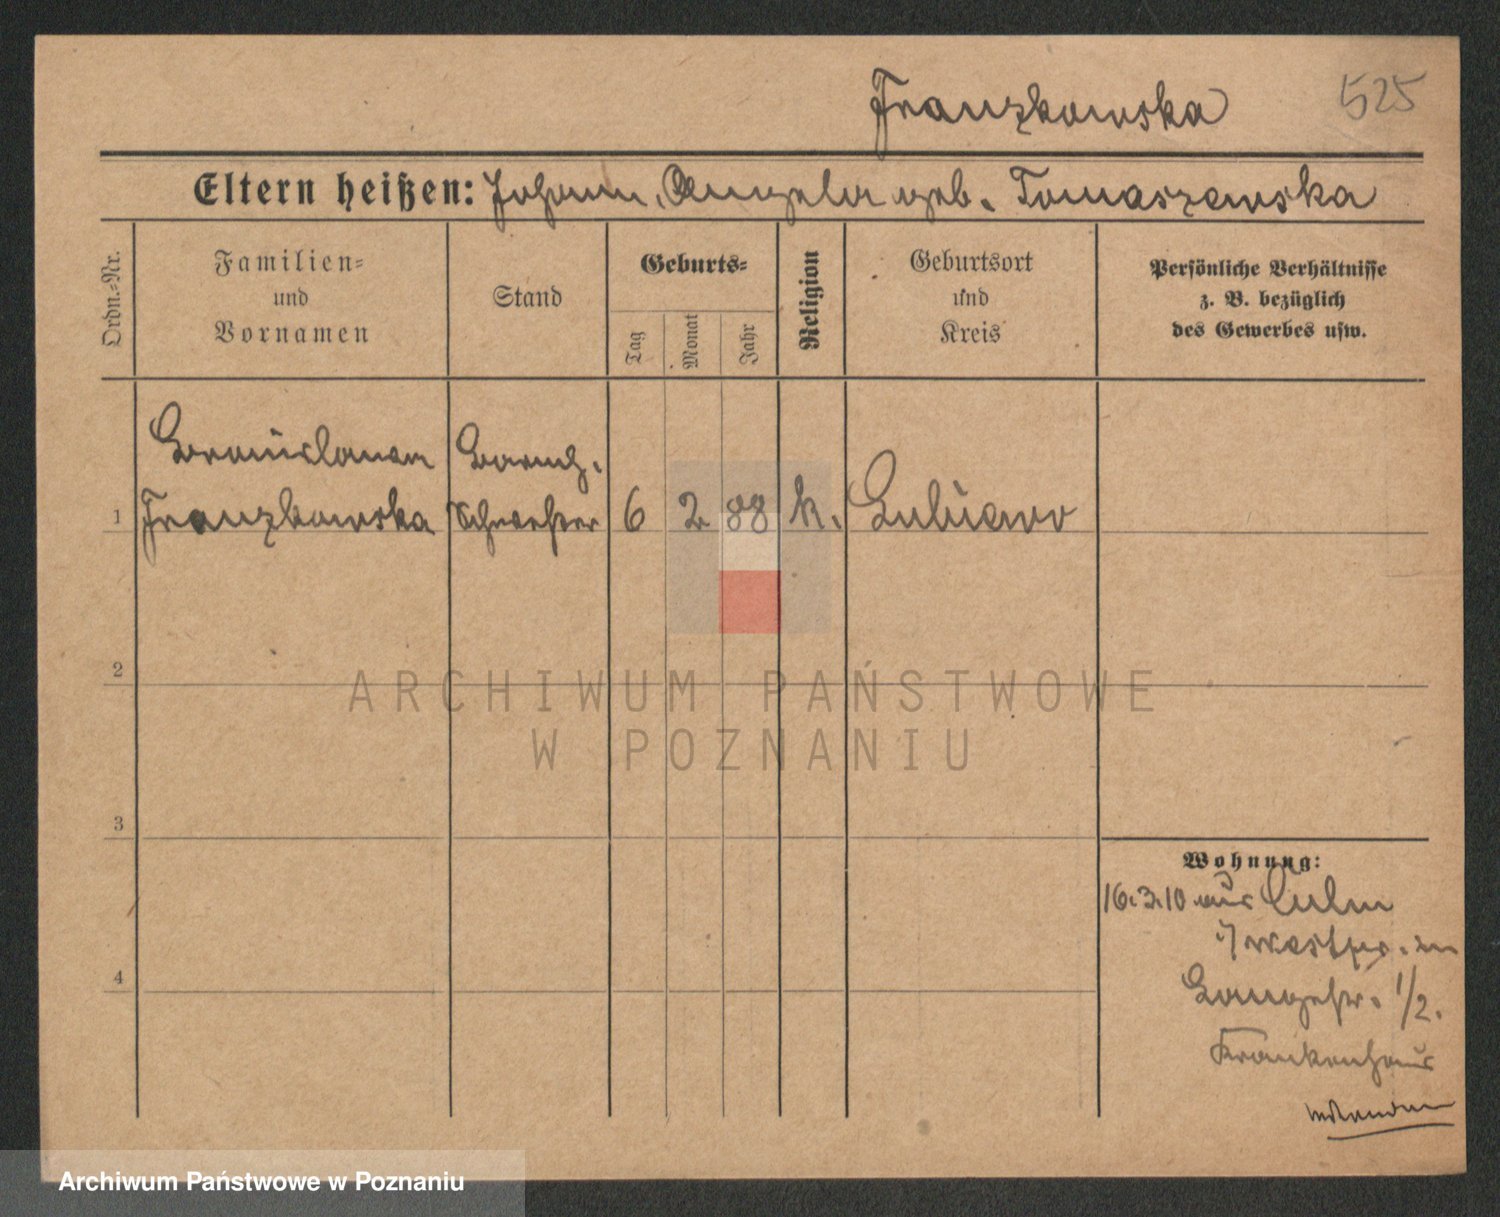 Franzkowska 525
Eltern heißen: Johann, Angela geb. Tomaszewska
Ordn.-Nr.
Familien-
und
Vornamen
Stand
Geburts-
Tag
Monat
Jahr
Religion
Geburtsort
und
Kreis
Persönliche Verhältnisse
z. B. bezüglich
des Gewerbes usw.
Bronislawa Barmh.
1 Franzkowska Schwester 6 2 88 k. Lubiewo
2
ARCHIWUM PAŃSTWOWE
W POZNANIU
3
Wohnung:
16.3.10 aus Culm
i/Westpr. in
Langestr. 1/2.
4
Krankenhaus
Archiwum Państwowe w Poznaniu